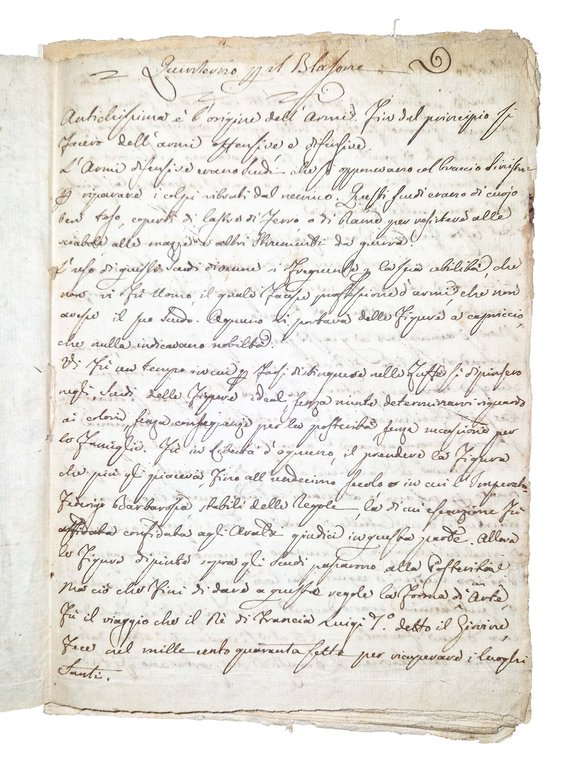 Quinterno p il Blasone
Antichissima è l'origine dell'Armi. Fin dal principio si
fecero dell'armi offensive e difensive.
L'Armi difensive erano scudi che si opponevano col braccio sinistro
p riparare i colpi vibrati dal nemico. Questi scudi erano di cuojo
ben teso, coperti di lastre di ferro o di Rame per resistere alle
sciabole alle mazze e altri strumenti da guerra
L'uso di questi scudi divenne sì frequente p la sua abilità, che
non vi fù Uomo il quale facesse professione d'armi che non
avesse il suo scudo. Ognuno vi portava delle figure a capriccio,
che nulla indicavano nobiltà.
Vi fù un tempo in cui p farsi distinguere nelle zuffe si dipinsero
negli scudi delle figure ideali senza nulla determinarvi riguardo
ai colori, senza conseguenze per la posterità, senza successione per
le famiglie. Fù in libertà d'ognuno, il prendere la figura
che più gli piaceva, fino all'undecimo secolo in cui l'Imperator
Federigo Barbarossa, stabilì delle Regole, la di cui esecuzione fù
affidata confidata agli Araldi giudici in questa parte. Allora
le figure dipinte sopra gli scudi passarono alla Posterità.
Ma ciò che finì di dare a queste regole la forma di Arte
fù il viaggio che il Rè di Francia Luigi 7.º detto il Giovine,
fece nel mille cento quaranta sette per ricuperare i luoghi
Santi.